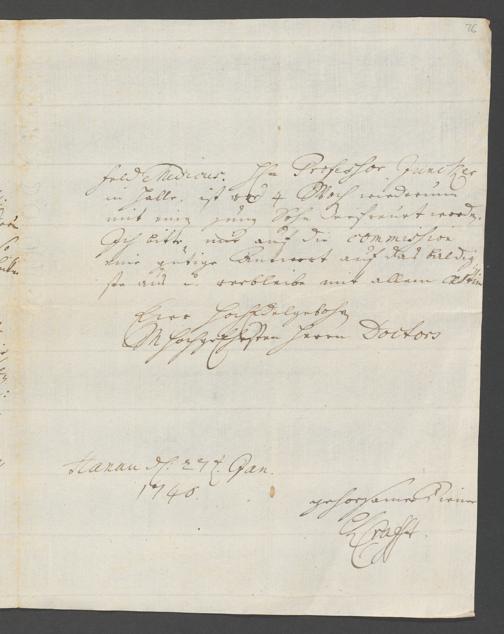 76
feld Medicus. Hr. Professor Juncker
in Halle, ist vor 4 Woch wiederum
mit ein jung Sohn erfreuet word.
Ich bitte mir auf die commission
eine gütige Antwort auf das baldig
ste aus u. verbleibe mit allem
Eier HochEdelgebohr
M Hochgeehrtesten Herrn Doctors
Hanau d. 27t. Jan.
1740.
gehorsamer Diener
Crafft.